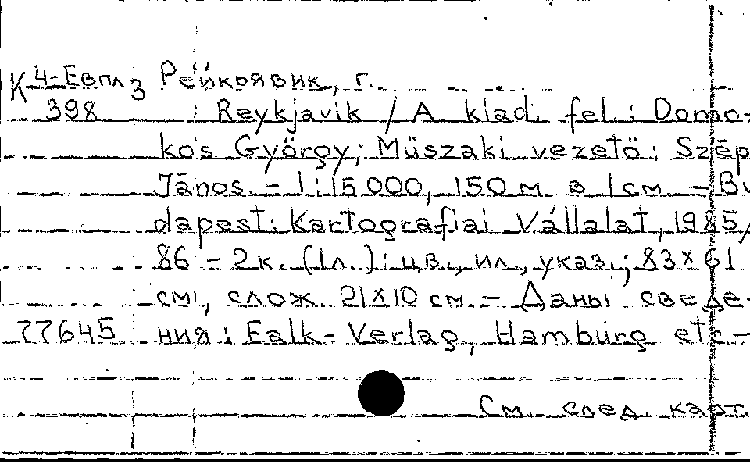 К 4-Евпл 3 Рейкоявик, г.
398 Reykjavik / A kiad. fel.: Domo-
kos György; Müszaki vezetö: Szép
János. - 1:15 000, 150 м в 1 см. - Bu
dapest: Kartografiai Vállalat, 1985/
86 - 2 к. (1 л.): цв., ил., указ.; 83×61
см, слож. 21×10 см. - Даны сведе-
77645 ния: Falk-Verlag, Hamburg etc.-
См. след. карт.